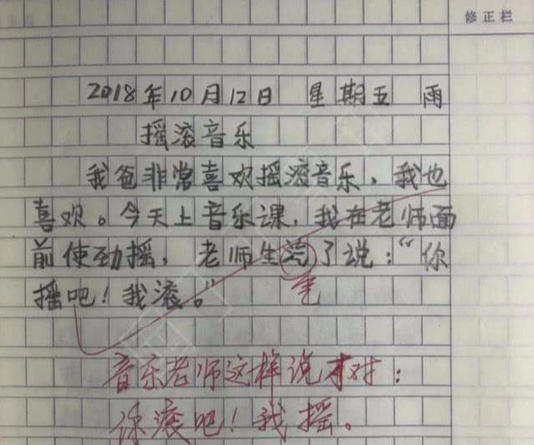 修正栏
2018年10月12日 星期五 雨
摇滚音乐
我爸非常喜欢摇滚音乐,我也
喜欢。今天上音乐课,我在老师面
前使劲摇,老师生完了说:“你
摇吧!我滚。”
音乐老师这样说才对:
你滚吧!我摇。